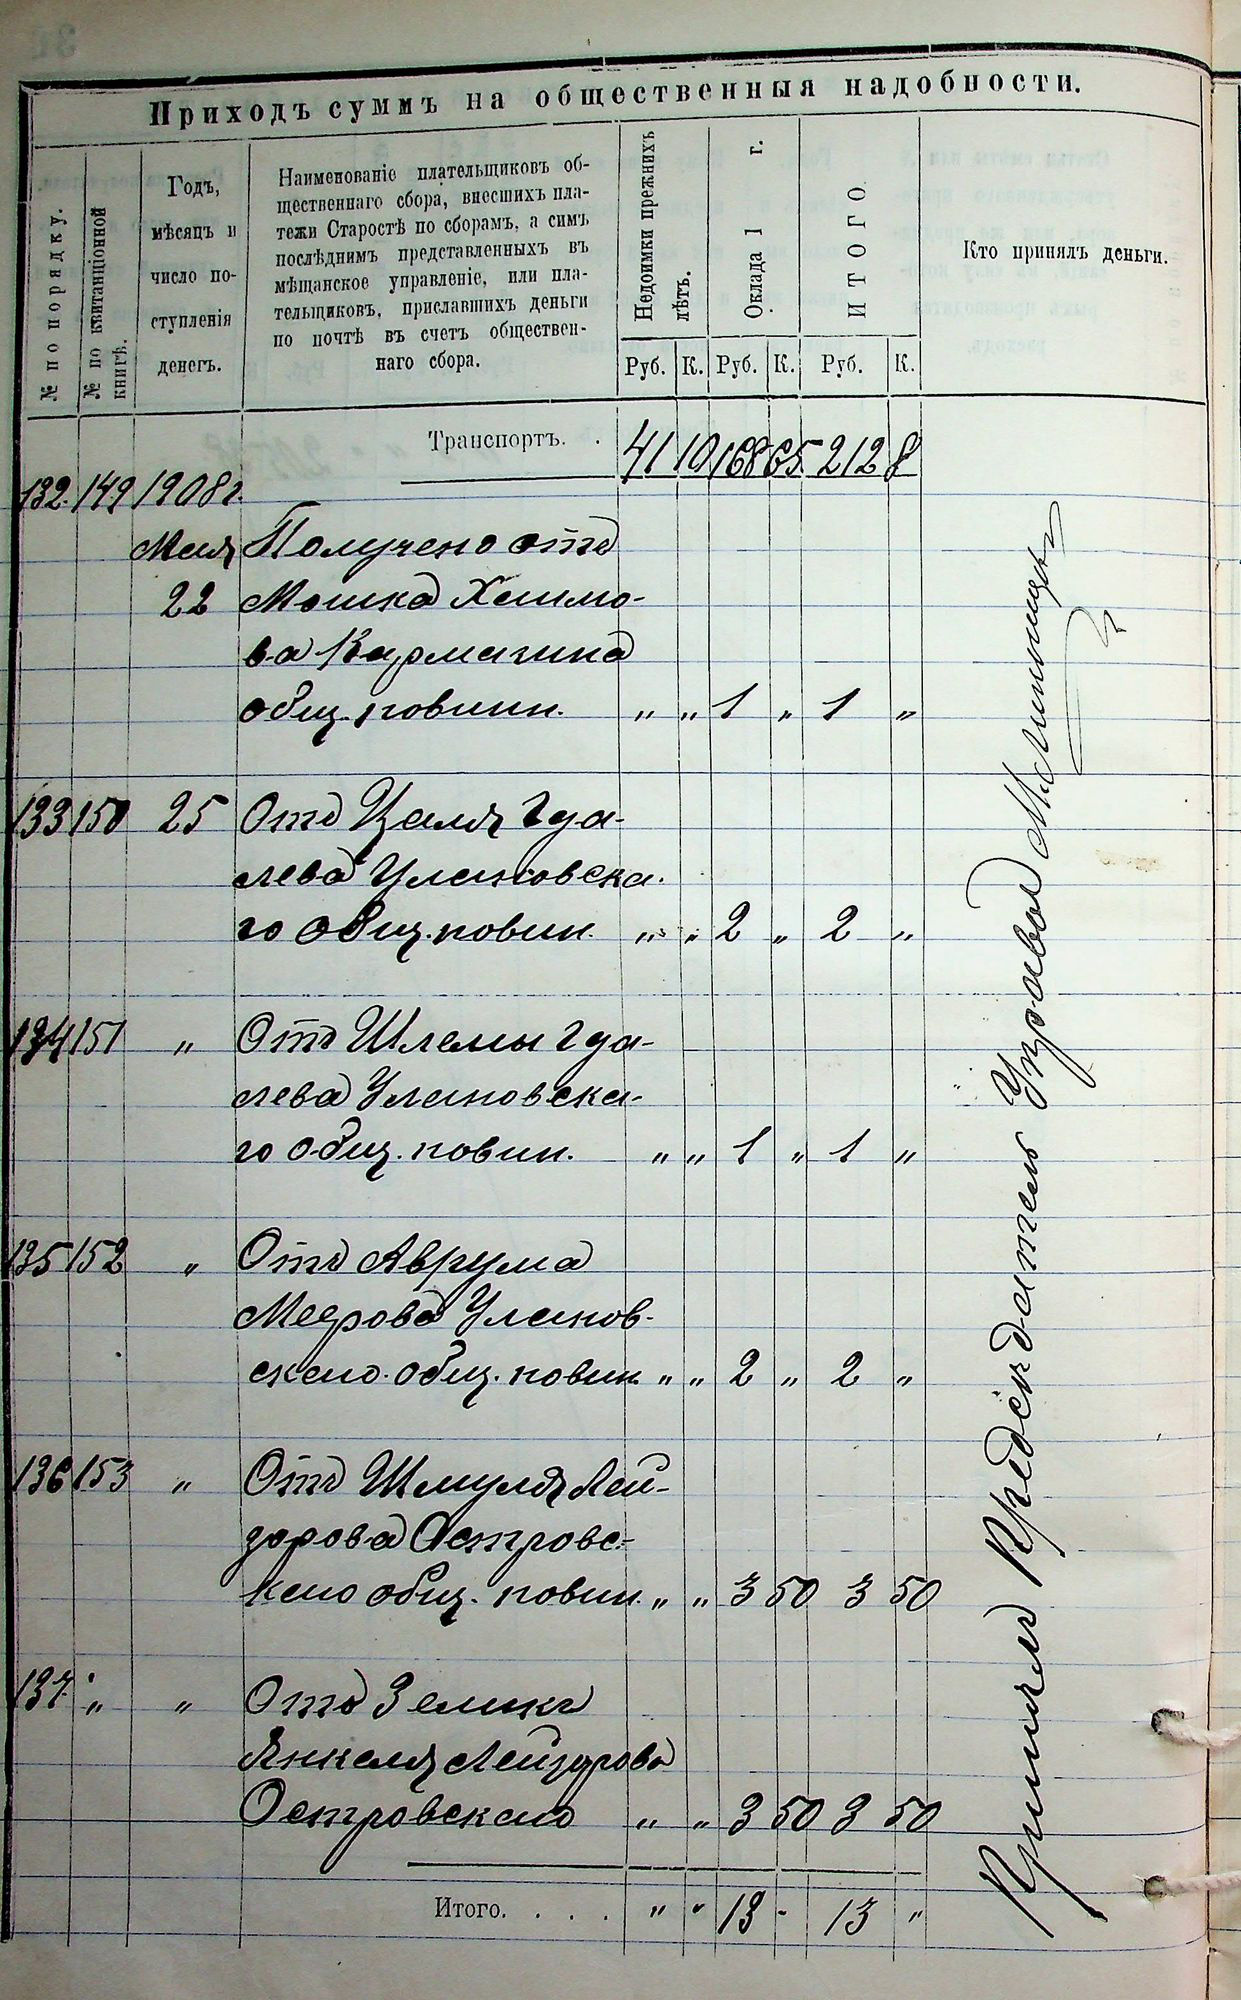 Приходъ суммъ на общественныя надобности.
№ по порядку.
№ по квитанціонной книгѣ.
Годъ,
мѣсяцъ и
число по-
ступленія
денегъ.
Наименованіе плательщиковъ об-
щественнаго сбора, внесшихъ пла-
тежи Старостѣ по сборамъ, а симъ
послѣднимъ представленныхъ въ
мѣщанское управленіе, или пла-
тельщиковъ, приславшихъ деньги
по почтѣ въ счетъ обществен-
наго сбора.
Недоимки прежнихъ
лѣтъ.
Оклада 1 г.
ИТОГО.
Кто принялъ деньги.
Руб. К. Руб. К. Руб. К.
Транспортъ. . 41 10 168 65 212 8
132. 149 1908 г.
Мая Получено отъ
22 Мошка Хаимо-
ва Кармагина
общ. повин. „ „ 1 „ 1 „
133 150 25 Отъ Цаля Гда-
лева Улановска-
го общ. повин. „ „ 2 „ 2 „
134 151 „ Отъ Шлемы Гда-
лева Улановска-
го общ. повин. „ „ 1 „ 1 „
135 152 „ Отъ Аврума
Меерова Уланов-
скаго общ. повин. „ „ 2 „ 2 „
136 153 „ Отъ Шмуля Лей-
зорова Островс-
каго общ. повин. „ „ 3 50 3 50
137. „ „ Отъ Зелика
Янкеля Лейзорова
Островскаго „ „ 3 50 3 50
Итого. . . . „ „ 13 - 13 „
Принялъ Предсѣдатель Управы